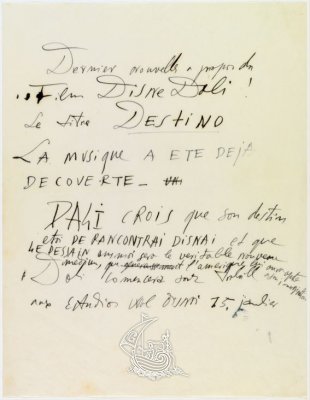 Dernier nouvelle a propos du
Film Disne Dali !
Le titre DESTINO
LA MUSIQUE A ETE DEJA
DECOUVERTE _ UN
DALI CROIS que son destin
etai DE RANCONTRAI DISNAI et que
LE DESSAIN animai sera le veritable nouveau
medium que l'amerique
Dali comencera son
aux Estudios Wal Disnai 15, janvier